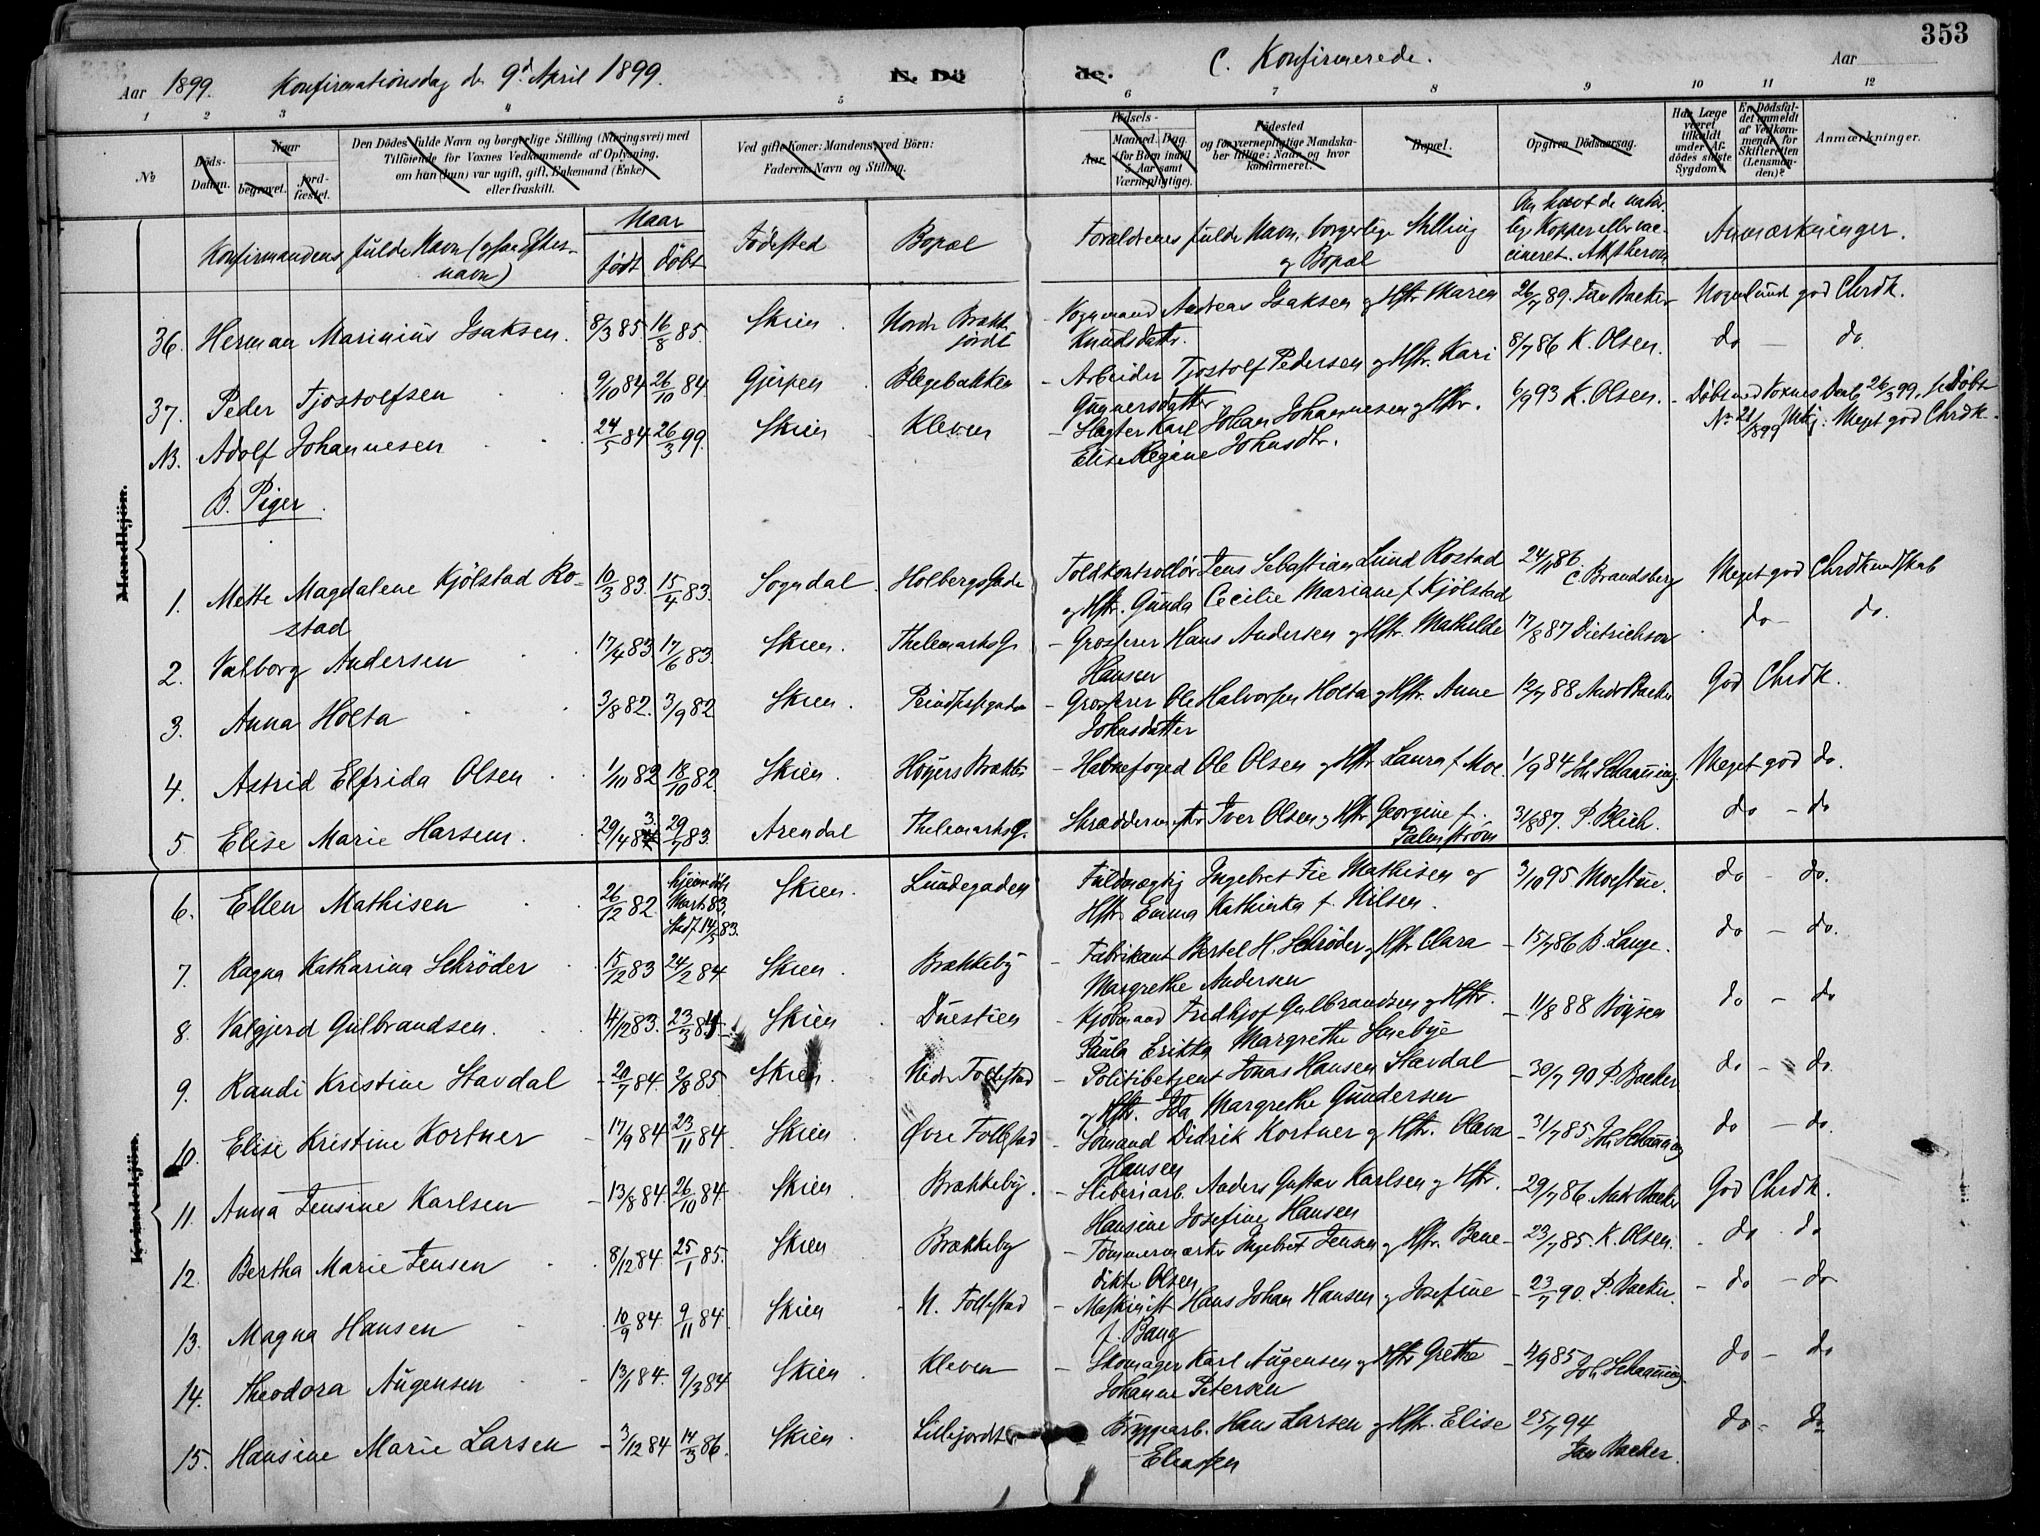 353
Aar 1899. Konfirmationsdag den 9d April 1899. E. Dö de. C. Konfirmerede. Aar
1 2 3 4 5 6 7 8 9 10 11 12
No Döds-Datum. Naar begravet. Jord-fæstet. Den Dödes fulde Navn og borgerlige Stilling (Næringsvei) med Tilföiende for Voxnes Vedkommende af Oplysning, om han (hun) var ugift, gift, Enkemand (Enke) eller fraskilt. Ved gifte Koner: Mandens, ved Börn: Faderens Navn og Stilling. Födsels- Aar Maaned. Dag (for Börn indtil 5 Aar samt Værnepligtige). Födested og for værnepligtige Mandskaber tillige: Naar og hvor konfirmeret. Bopæl. Opgiven Dödsaarsag. Har Læge været tilkaldt under Afdödes sidste Sygdom? Er Dödsfaldet anmeldt af Vedkommende for Skifteretten (Lensmanden)? Anmærkninger.
Konfirmandens fulde Navn (ogsaa Efternavn) Naar født døbt Fødested Bopæl Forældrenes fulde Navn, borgerlige Stilling og Bopæl Om havt de naturlige Kopper eller vaccineret. Anmærkninger.
Mandkjön.
36. Herman Marinius Isaksen. 8/3 85. 16/8 85. Skien. Nordr Brækkejordet Vognmand Andreas Isaksen og Hstr Maren Knudsdattr. 26/7 89. Jan Backer Nogenlund god Chrdk.
37. Peder Tjostolfsen 9/10 84 26/10 84. Gjerpen Blegebakken Arbeider Tjostolf Pedersen og Hstr. Kari Gunnersdatter 8/7 86 K. Olsen. do — do.
N3. Adolf Johannesen 24/5 84 26/3 99. Skien Kleven Slagter Karl Johan Johannesen og Hstr. Elise Regine Johnsdtr. 6/9 93 K. Olsen. Døbt ved Voxnes Daab 26/3 99, se Døbte No 21/1899. Meget god Chrdk.
B. Piger
1. Mette Magdalene Kjölstad Rostad 10/3 83. 15/4 83. Sogndal. Holbergsgade Toldkontrollør Jens Sebastian Lund Rostad og Hstr. Gunda Cecilie Mariane f. Kjölstad 24/1 86. C. Brandsberg Meget god Chrdkundskab
2. Valborg Andersen 17/4 83 17/6 83. Skien. Thelemarksg. Grosserer Hans Andersen og Hstr. Mathilde Hansen 17/8 87 Dietrichson do do.
3. Anna Holta 3/8 82. 3/9 82 Skien. Prindsesgaden Grosserer Ole Halvorsen Holta og Hstr. Anne Johnsdatter 12/7 88 Andr Backer God Chrdk.
4. Astrid Elfrida Olsen 1/10 82 18/10 82 Skien. Høyers Brække Havnefoged Ole Olsen og Hstr. Laura f. Moe. 1/9 84 Joh Schaaning Meget god do.
5. Elise Marie Harsem. 29/4 83 29/7 83. Arendal Thelemarksg. Skræddermstr Iver Olsen og Hstr Georgine f. Palmstrøm 31/8 87. P. Blich. do — do
Kvindekjön.
6. Ellen Mathisen 26/12 82. hjemdøbt Marts 83, Stadf. 14/5 83. Skien. Lundegaden Fuldmægtig Ingebret Fie Mathisen og Hstr. Emma Kathinka f. Nilsen. 3/10 95 Moestue. do — do.
7. Ragna Katharina Schröder 15/12 83 24/2 84 Skien. Brækkeby Fabrikant Bertel H. Schröder og Hstr Clara Margrethe Andersen 15/7 86 B. Lange. do — do.
8. Valgjerd Gulbrandsen. 4/12 83. 23/3 84 Skien Duestien Kjøbmand Fredhjof Gulbrandsen og Hstr. Paula Erikka Margrethe Snebye 11/8 88 Boysen do — do
9. Randi Kristine Stavdal 20/7 84. 2/8 85. Skien. Nedr Follestad Politibetjent Jonas Hansen Stavdal og Hstr. Ida Margrethe Gundersen 30/7 90 P. Backer do — do.
10. Elise Kristine Kortner 17/9 84 23/11 84. Skien. Øvre Follestad Sømand Didrik Kortner og Hstr. Olava Hansen 31/7 85 Joh Schaaning do — do.
11. Anna Jensine Karlsen 13/8 84 26/10 84 Skien Brækkeby. Sliberiarb. Anders Gustav Karlsen og Hstr. Hansine Josefine Hansen 29/7 86 Andr Backer God Chrdk.
12. Bertha Marie Jensen 8/12 84 25/1 85. Skien Brækkeby Tømmermærker Ingebret Jensen og Hstr. Benedikte Olsen 23/7 85. K. Olsen. do do
13. Magna Hansen 10/9 84. 9/11 84. Skien N. Follestad Maskinist Hans Johan Hansen og Josefine f. Bang 23/7 90. P. Backer. do — do
14. Theodora Augensen 13/1 84. 9/3 84 Skien Kleven Skomager Karl Augensen og Hstr Grethe Johanne Petersen 4/9 85 Joh Schaaning do — do
15. Hansine Marie Larsen 3/12 84 14/3 86. Skien. Lillejordet Bryggarb. Hans Larsen og Hstr. Elise Eliassen 25/7 94 Jan Backer. do — do